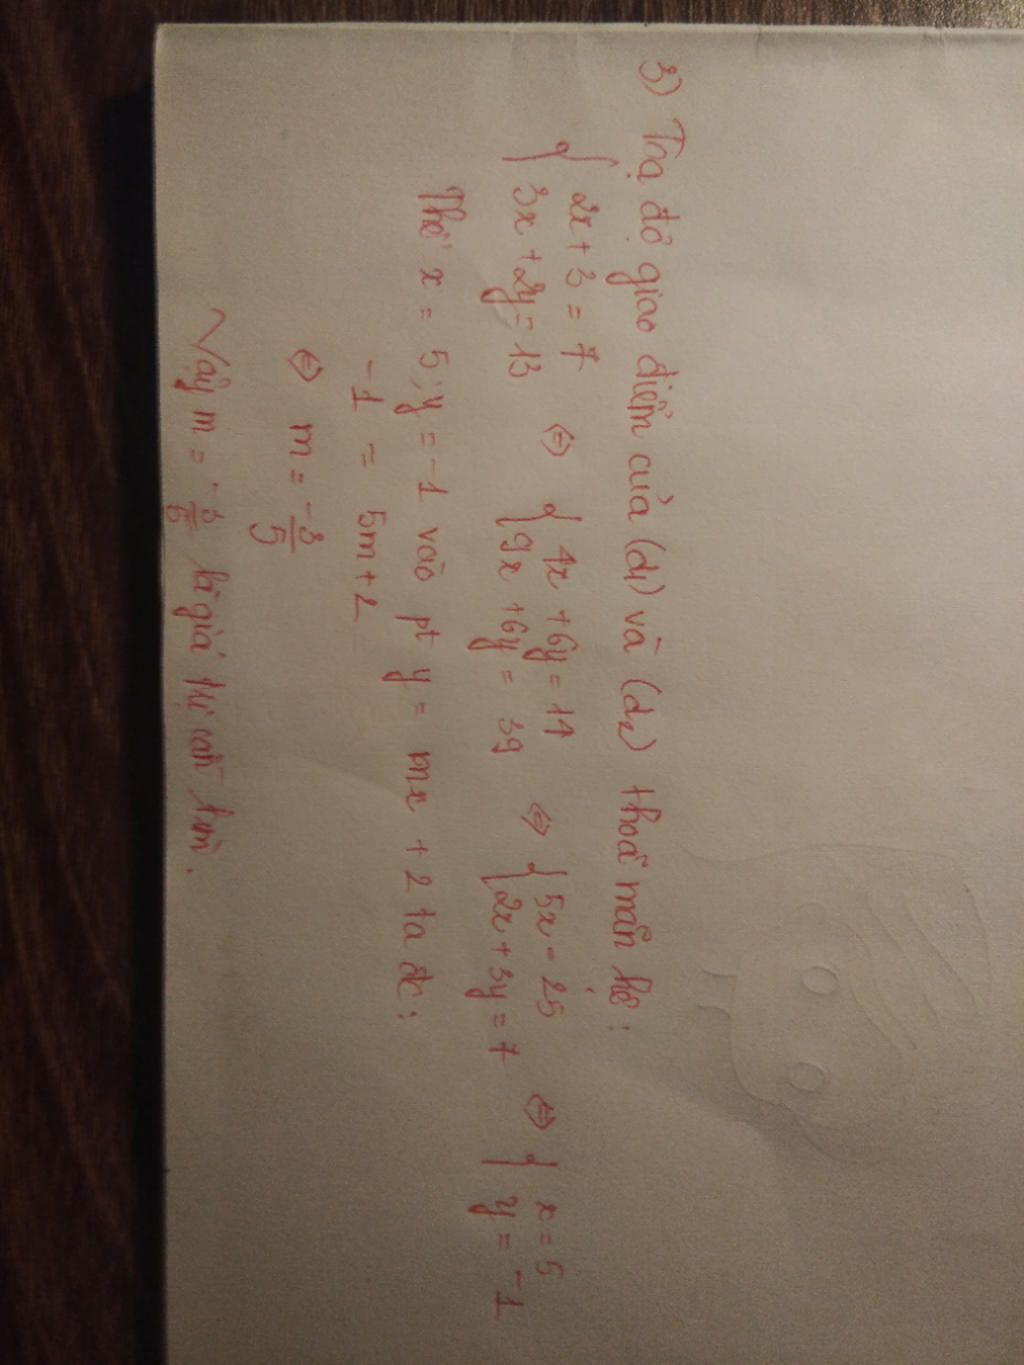 3) Toạ độ giao điểm của (d1) và (d2) thoả mãn hệ:
{ 2x + 3 = 7 ⇔ { 4x + 6y = 14 ⇔ { 5x = 25 ⇔ { x = 5
3x + 2y = 13 9x + 6y = 39 2x + 3y = 7 y = -1
Thế x = 5; y = -1 vào pt y = mx + 2 ta đc:
-1 = 5m + 2
⇔ m = -3/5
Vậy m = -3/5 là giá trị cần tìm.